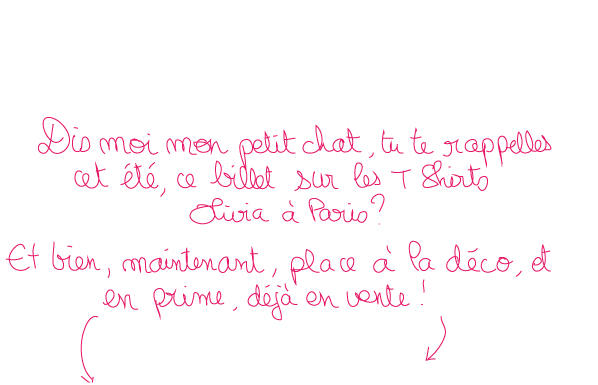 Dis moi mon petit chat, tu te rappelles
cet été, ce billet sur les T Shirts
Olivia à Paris?
Et bien, maintenant, place à la déco, et
en prime, déjà en vente!